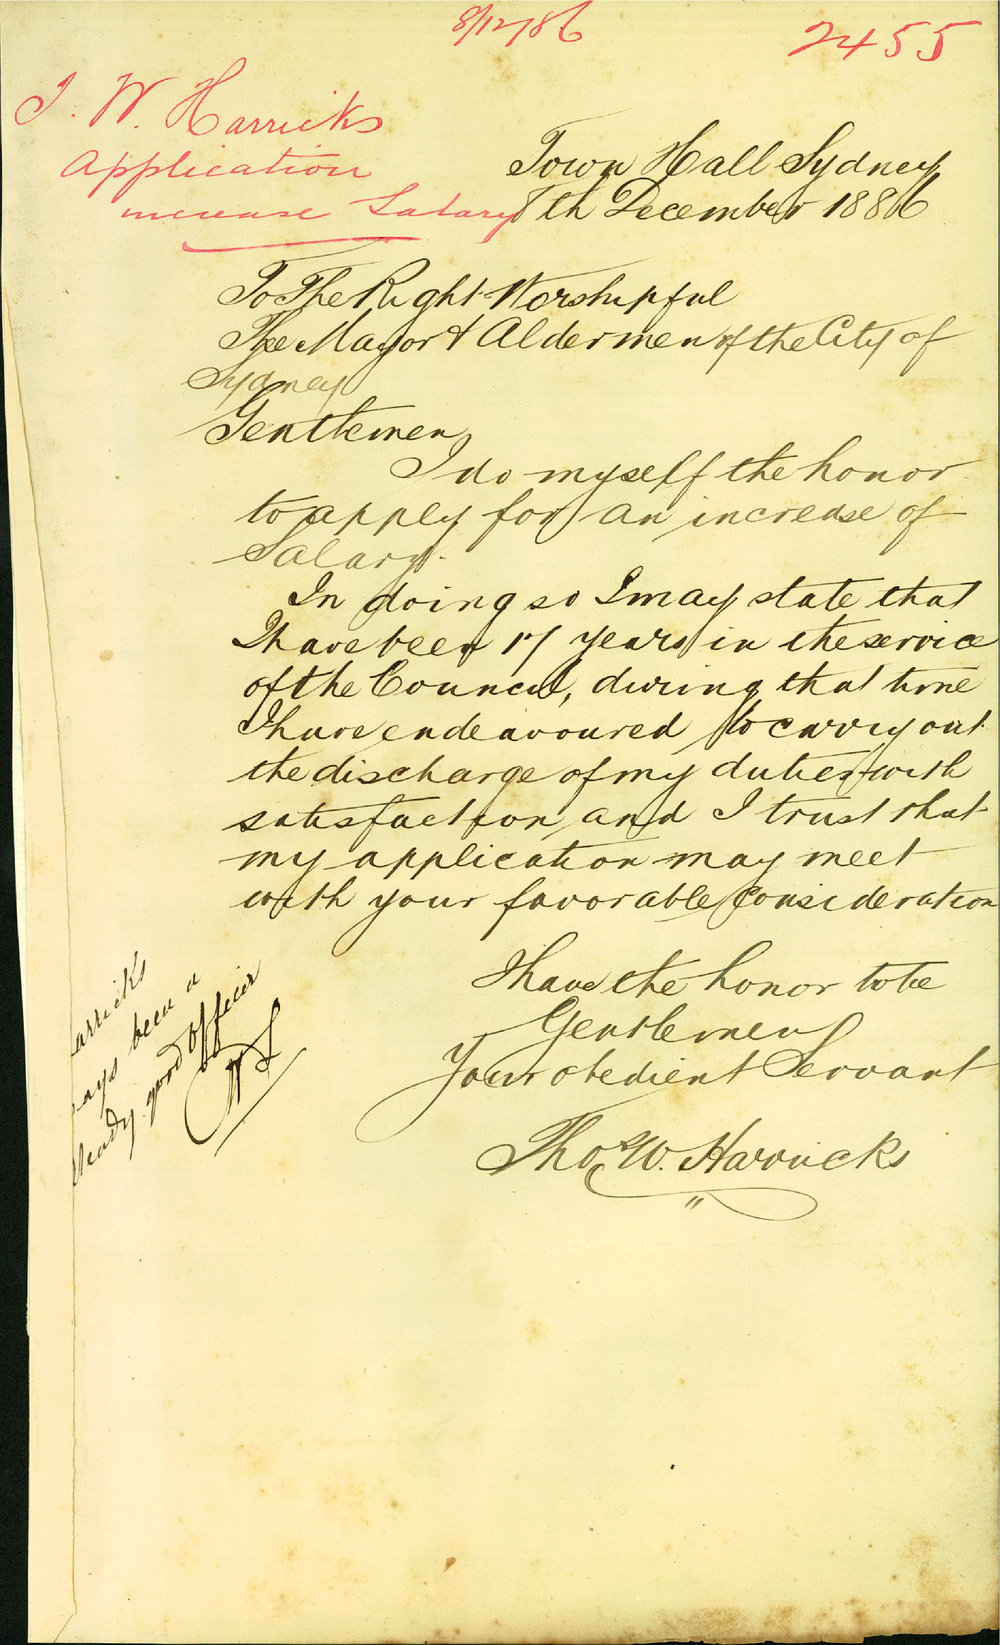 8/12/86
2455
T. W. Harricks
Application
increase Salary
Town Hall Sydney
8th December 1886
To The Right Worshipful
The Mayor & Aldermen of the City of
Sydney
Gentlemen
I do myself the honor
to apply for an increase of
Salary.
In doing so I may state that
I have been 17 years in the service
of the Council, during that time
I have endeavoured to carry out
the discharge of my duties with
satisfaction, and I trust that
my application may meet
with your favorable consideration
I have the honor to be
Gentlemen
Your obedient Servant
Tho W. Harricks
arricks
ays been a
steady good officer